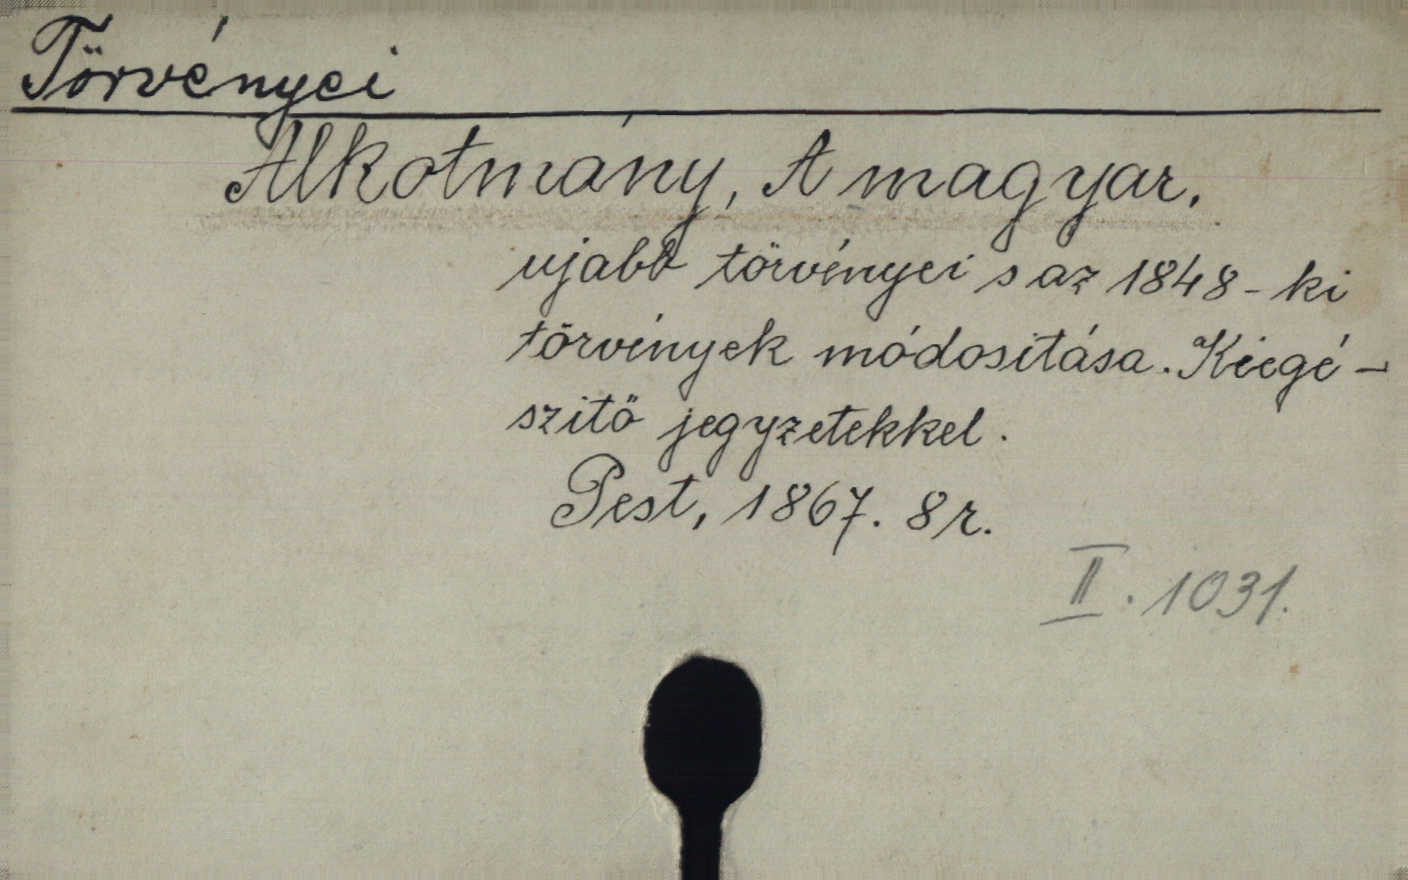 Törvényei
Alkotmány, A magyar.
ujabb törvényei s az 1848-ki
törvények módositása. Kiegé-
szitő jegyzetekkel.
Pest, 1867. 8r.
II. 1031.